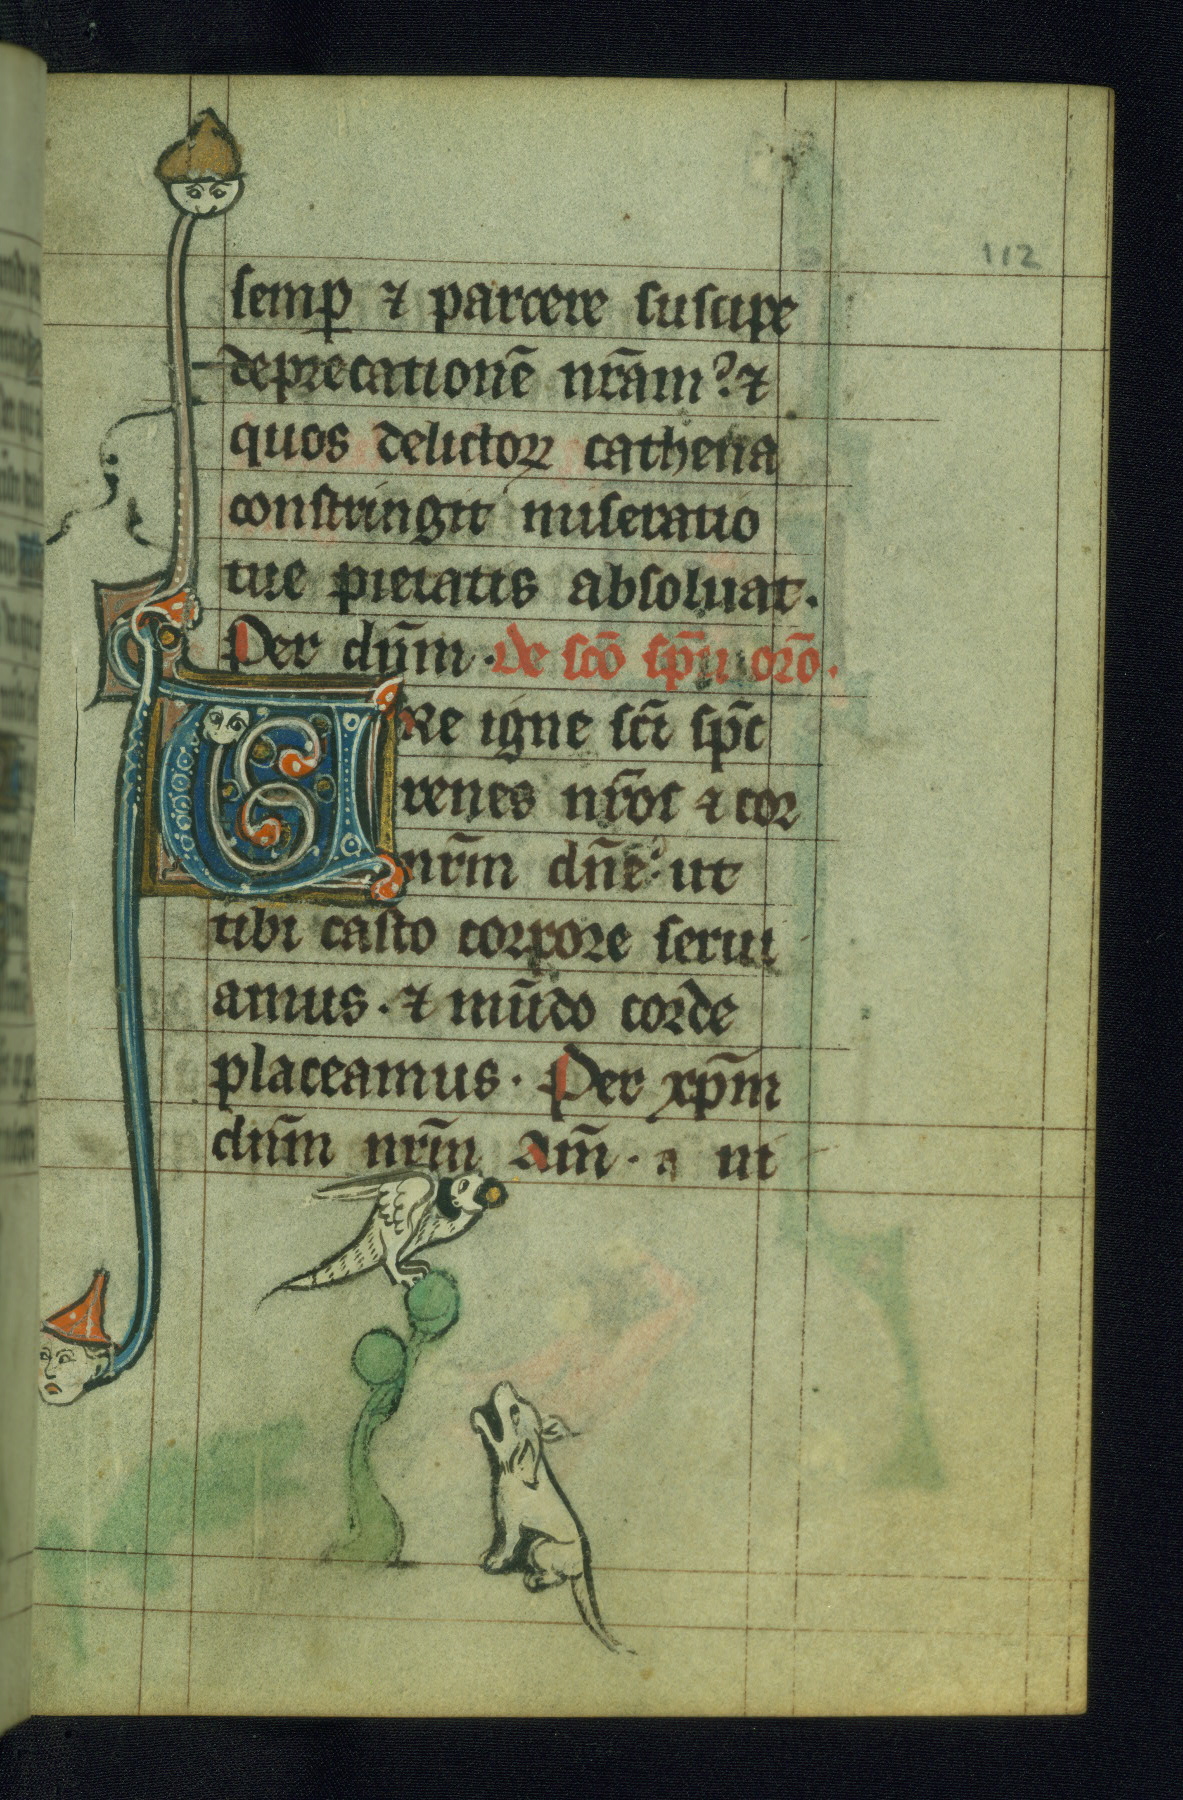 112
semp ⁊ parcere suscipe
deprecationē nr̄am? ⁊
quos delictoꝝ cathena
constringit miseratio
tue pietatis absoluat.
Per dn̄m. de sc̄o sp̄u oro̅.
URe igne sc̄i sp̄c
renes nr̄os ⁊ cor
nrm̄ dn̄e ut
tibi casto corpore serui
amus. ⁊ mūdo corde
placeamus. Per xp̄m
dn̄m nrm̄ Am̄.